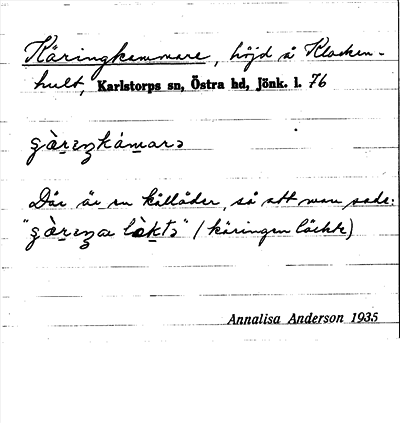 Käringkammare, höjd å Klacken-
hult, Karlstorps sn, Östra hd, Jönk. l. 76
Där är en källåder, så att man sade:
(käringen läckte)
Annalisa Anderson 1935